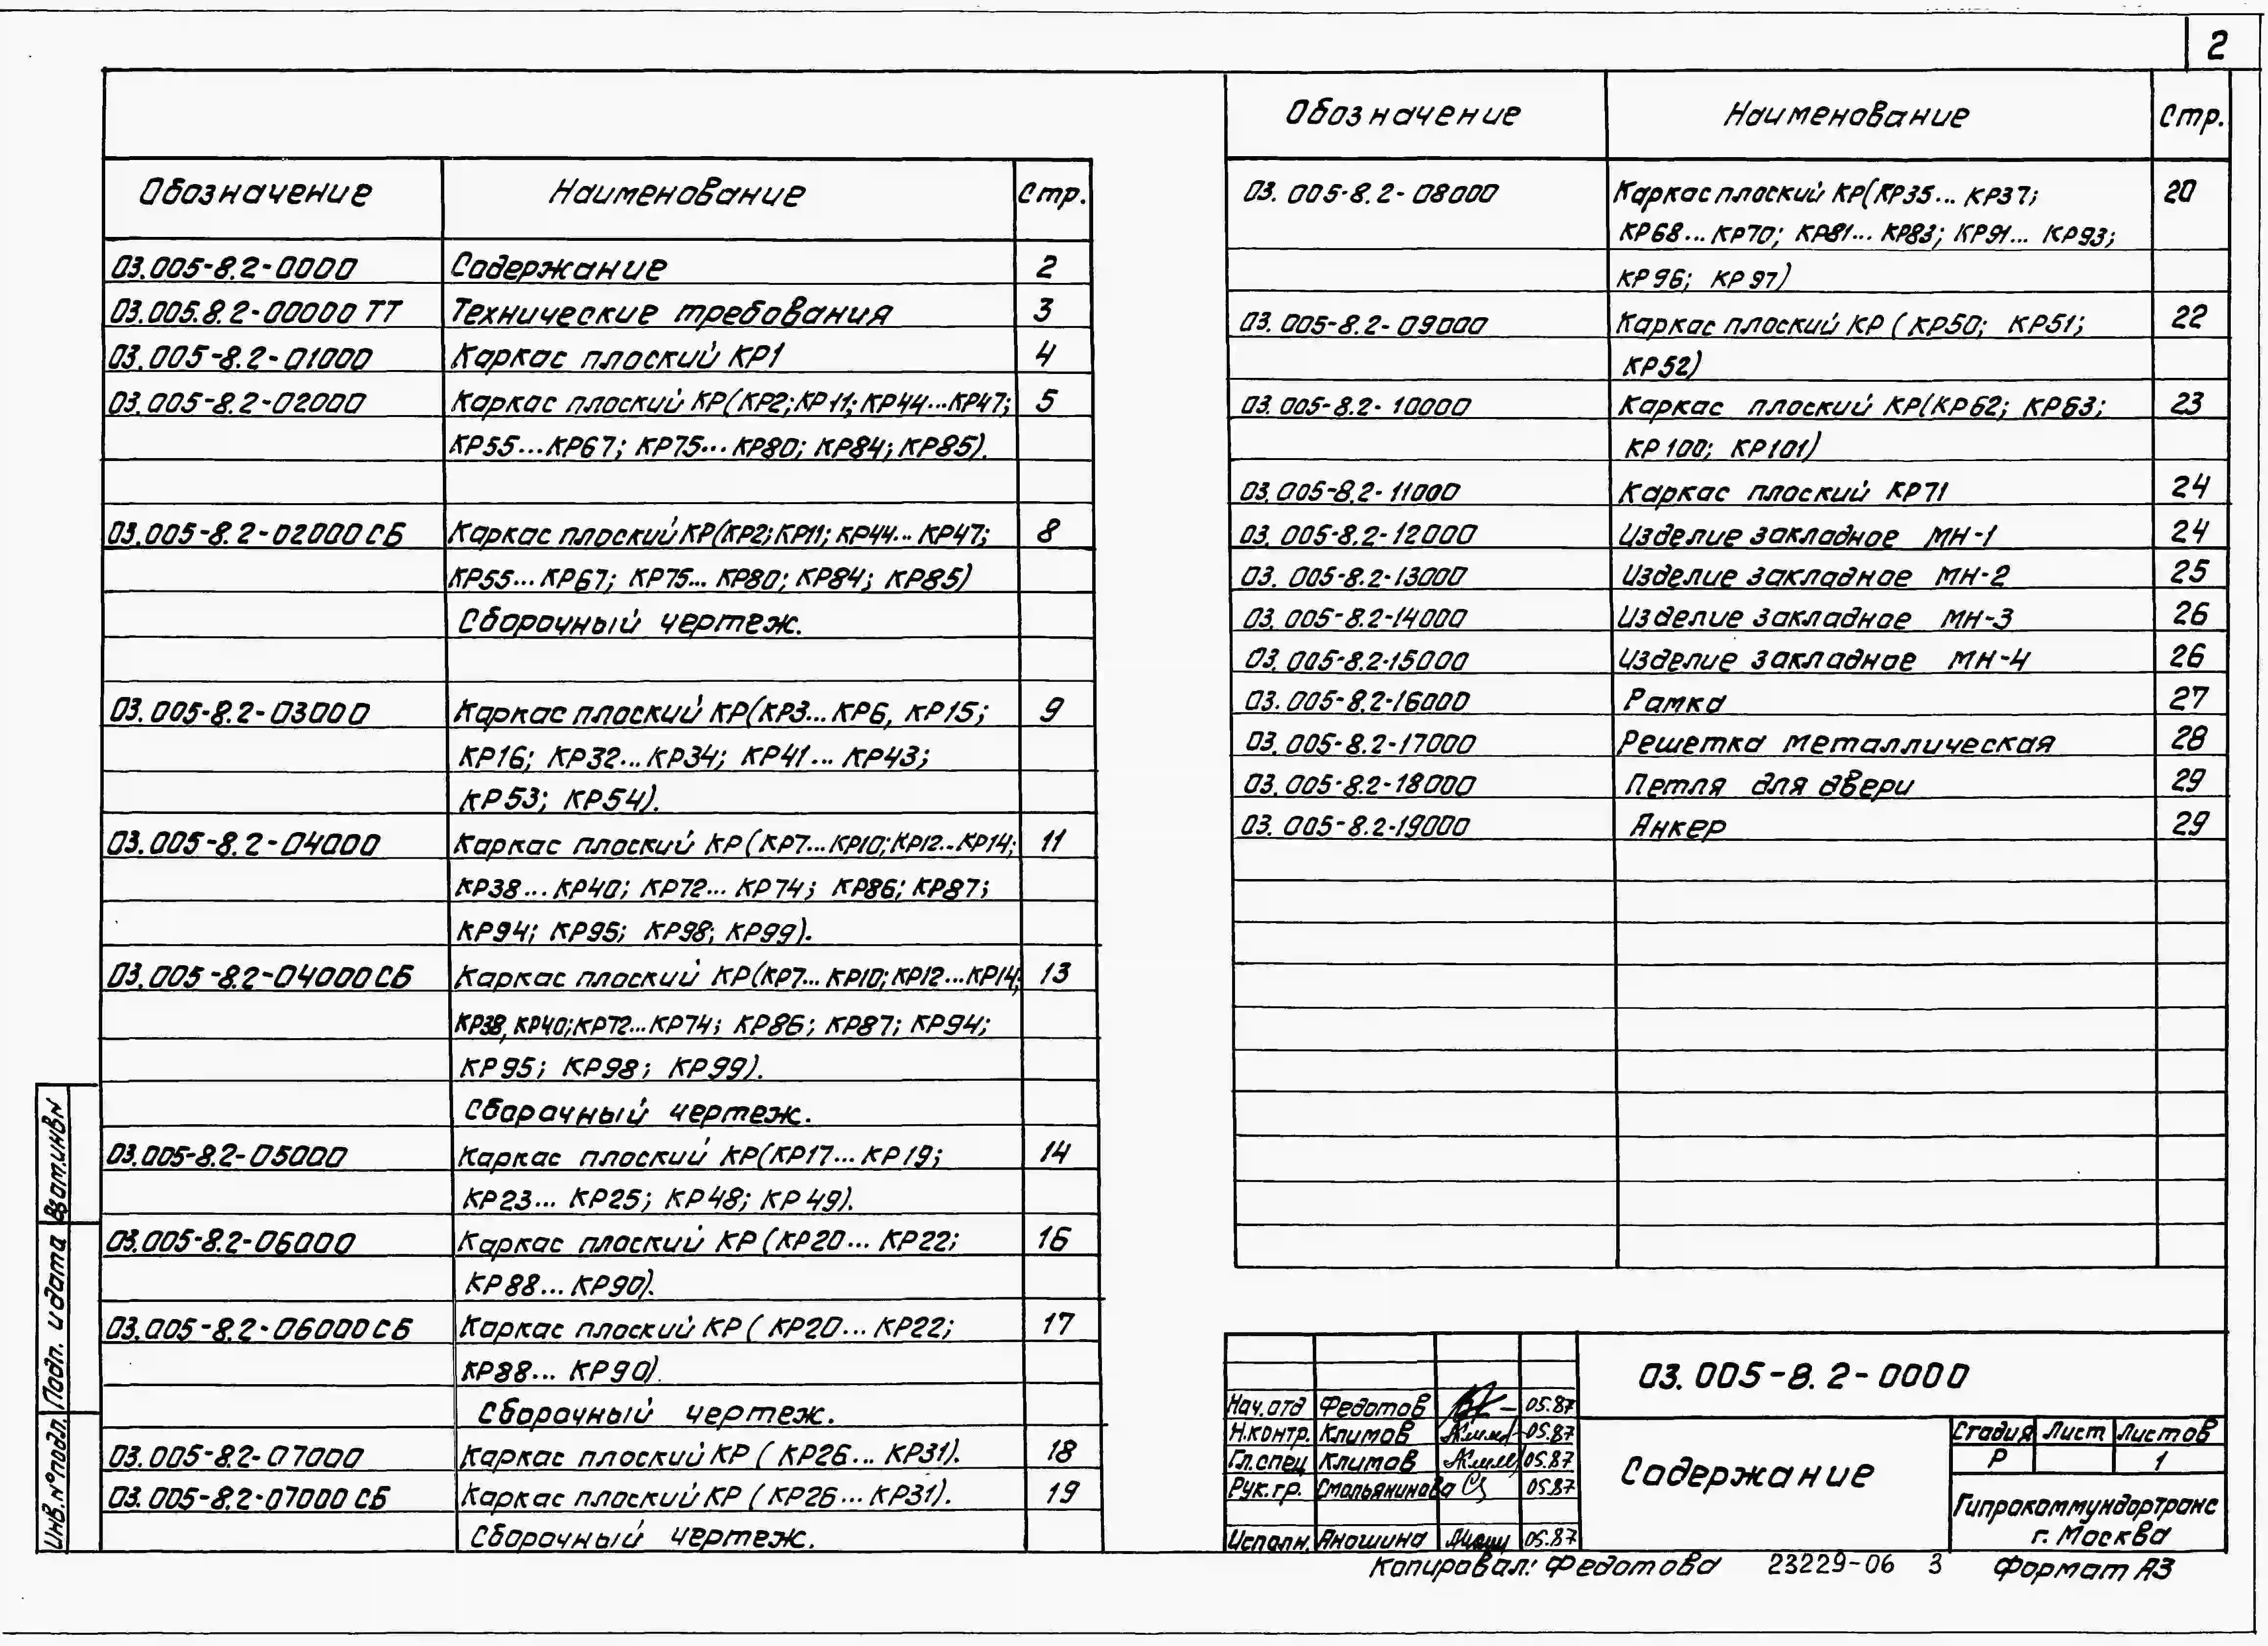 2
Обозначение Наименование Стр.
03.005-8.2-0000 Содержание 2
03.005.8.2-00000 ТТ Технические требования 3
03.005-8.2-01000 Каркас плоский КР1 4
03.005-8.2-02000 Каркас плоский КР(КР2;КР11;КР44...КР47; 5
КР55...КР67; КР75...КР80; КР84; КР85).
03.005-8.2-02000 СБ Каркас плоский КР(КР2;КР11; КР44...КР47; 8
КР55...КР67; КР75...КР80; КР84; КР85)
Сборочный чертеж.
03.005-8.2-03000 Каркас плоский КР(КР3...КР6, КР15; 9
КР16; КР32...КР34; КР41...КР43;
КР53; КР54).
03.005-8.2-04000 Каркас плоский КР(КР7...КР10;КР12...КР14; 11
КР38...КР40; КР72...КР74; КР86; КР87;
КР94; КР95; КР98; КР99).
03.005-8.2-04000СБ Каркас плоский КР(КР7...КР10;КР12...КР14; 13
КР38,КР40;КР72...КР74; КР86; КР87; КР94;
КР95; КР98; КР99).
Сборочный чертеж.
03.005-8.2-05000 Каркас плоский КР(КР17...КР19; 14
КР23...КР25; КР48; КР49).
03.005-8.2-06000 Каркас плоский КР(КР20...КР22; 16
КР88...КР90).
03.005-8.2-06000СБ Каркас плоский КР(КР20...КР22; 17
КР88...КР90).
Сборочный чертеж.
03.005-8.2-07000 Каркас плоский КР(КР26...КР31). 18
03.005-8.2-07000 СБ Каркас плоский КР(КР26...КР31). 19
Сборочный чертеж.
Обозначение Наименование Стр.
03.005-8.2-08000 Каркас плоский КР(КР35...КР37; 20
КР68...КР70; КР81...КР83; КР91...КР93;
КР96; КР97)
03.005-8.2-09000 Каркас плоский КР(КР50; КР51; 22
КР52)
03.005-8.2-10000 Каркас плоский КР(КР62; КР63; 23
КР100; КР101)
03.005-8.2-11000 Каркас плоский КР71 24
03.005-8.2-12000 Изделие закладное МН-1 24
03.005-8.2-13000 Изделие закладное МН-2 25
03.005-8.2-14000 Изделие закладное МН-3 26
03.005-8.2-15000 Изделие закладное МН-4 26
03.005-8.2-16000 Рамка 27
03.005-8.2-17000 Решетка металлическая 28
03.005-8.2-18000 Петля для двери 29
03.005-8.2-19000 Анкер 29
Взам.инв№
Подп. и дата
Инв.№подл.
03.005-8.2-0000
Нач.отд Федотов 05.87
Н.контр. Климов 05.87
Гл.спец Климов 05.87
Рук.гр. Смольянинова 05.87
Исполн. Аношина 05.87
Содержание
Стадия Лист Листов
Р 1
Гипрокоммундортранс
г. Москва
Копировал: Федотова 23229-06 3 Формат А3